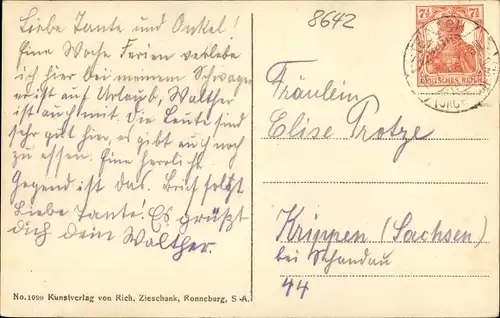 Liebe Tante und Onkel!
Eine Woche Ferien verlebe
ich hier bei meinem Schwager
er ist auf Urlaub, Walther
ist auch mit. Die Leute sind
sehr gut hier, es gibt auch noch
zu essen. Eine herrliche
Gegend ist das. Brief folgt
Liebe Tante! Es grüßt
dich dein Walther.
No. 1099 Kunstverlag von Rich. Zieschank, Ronneburg, S-A.
8642
7½ 7½
DEUTSCHES REICH
Fräulein
Elise Protze
Krippen (Sachsen)
bei Schandau
44